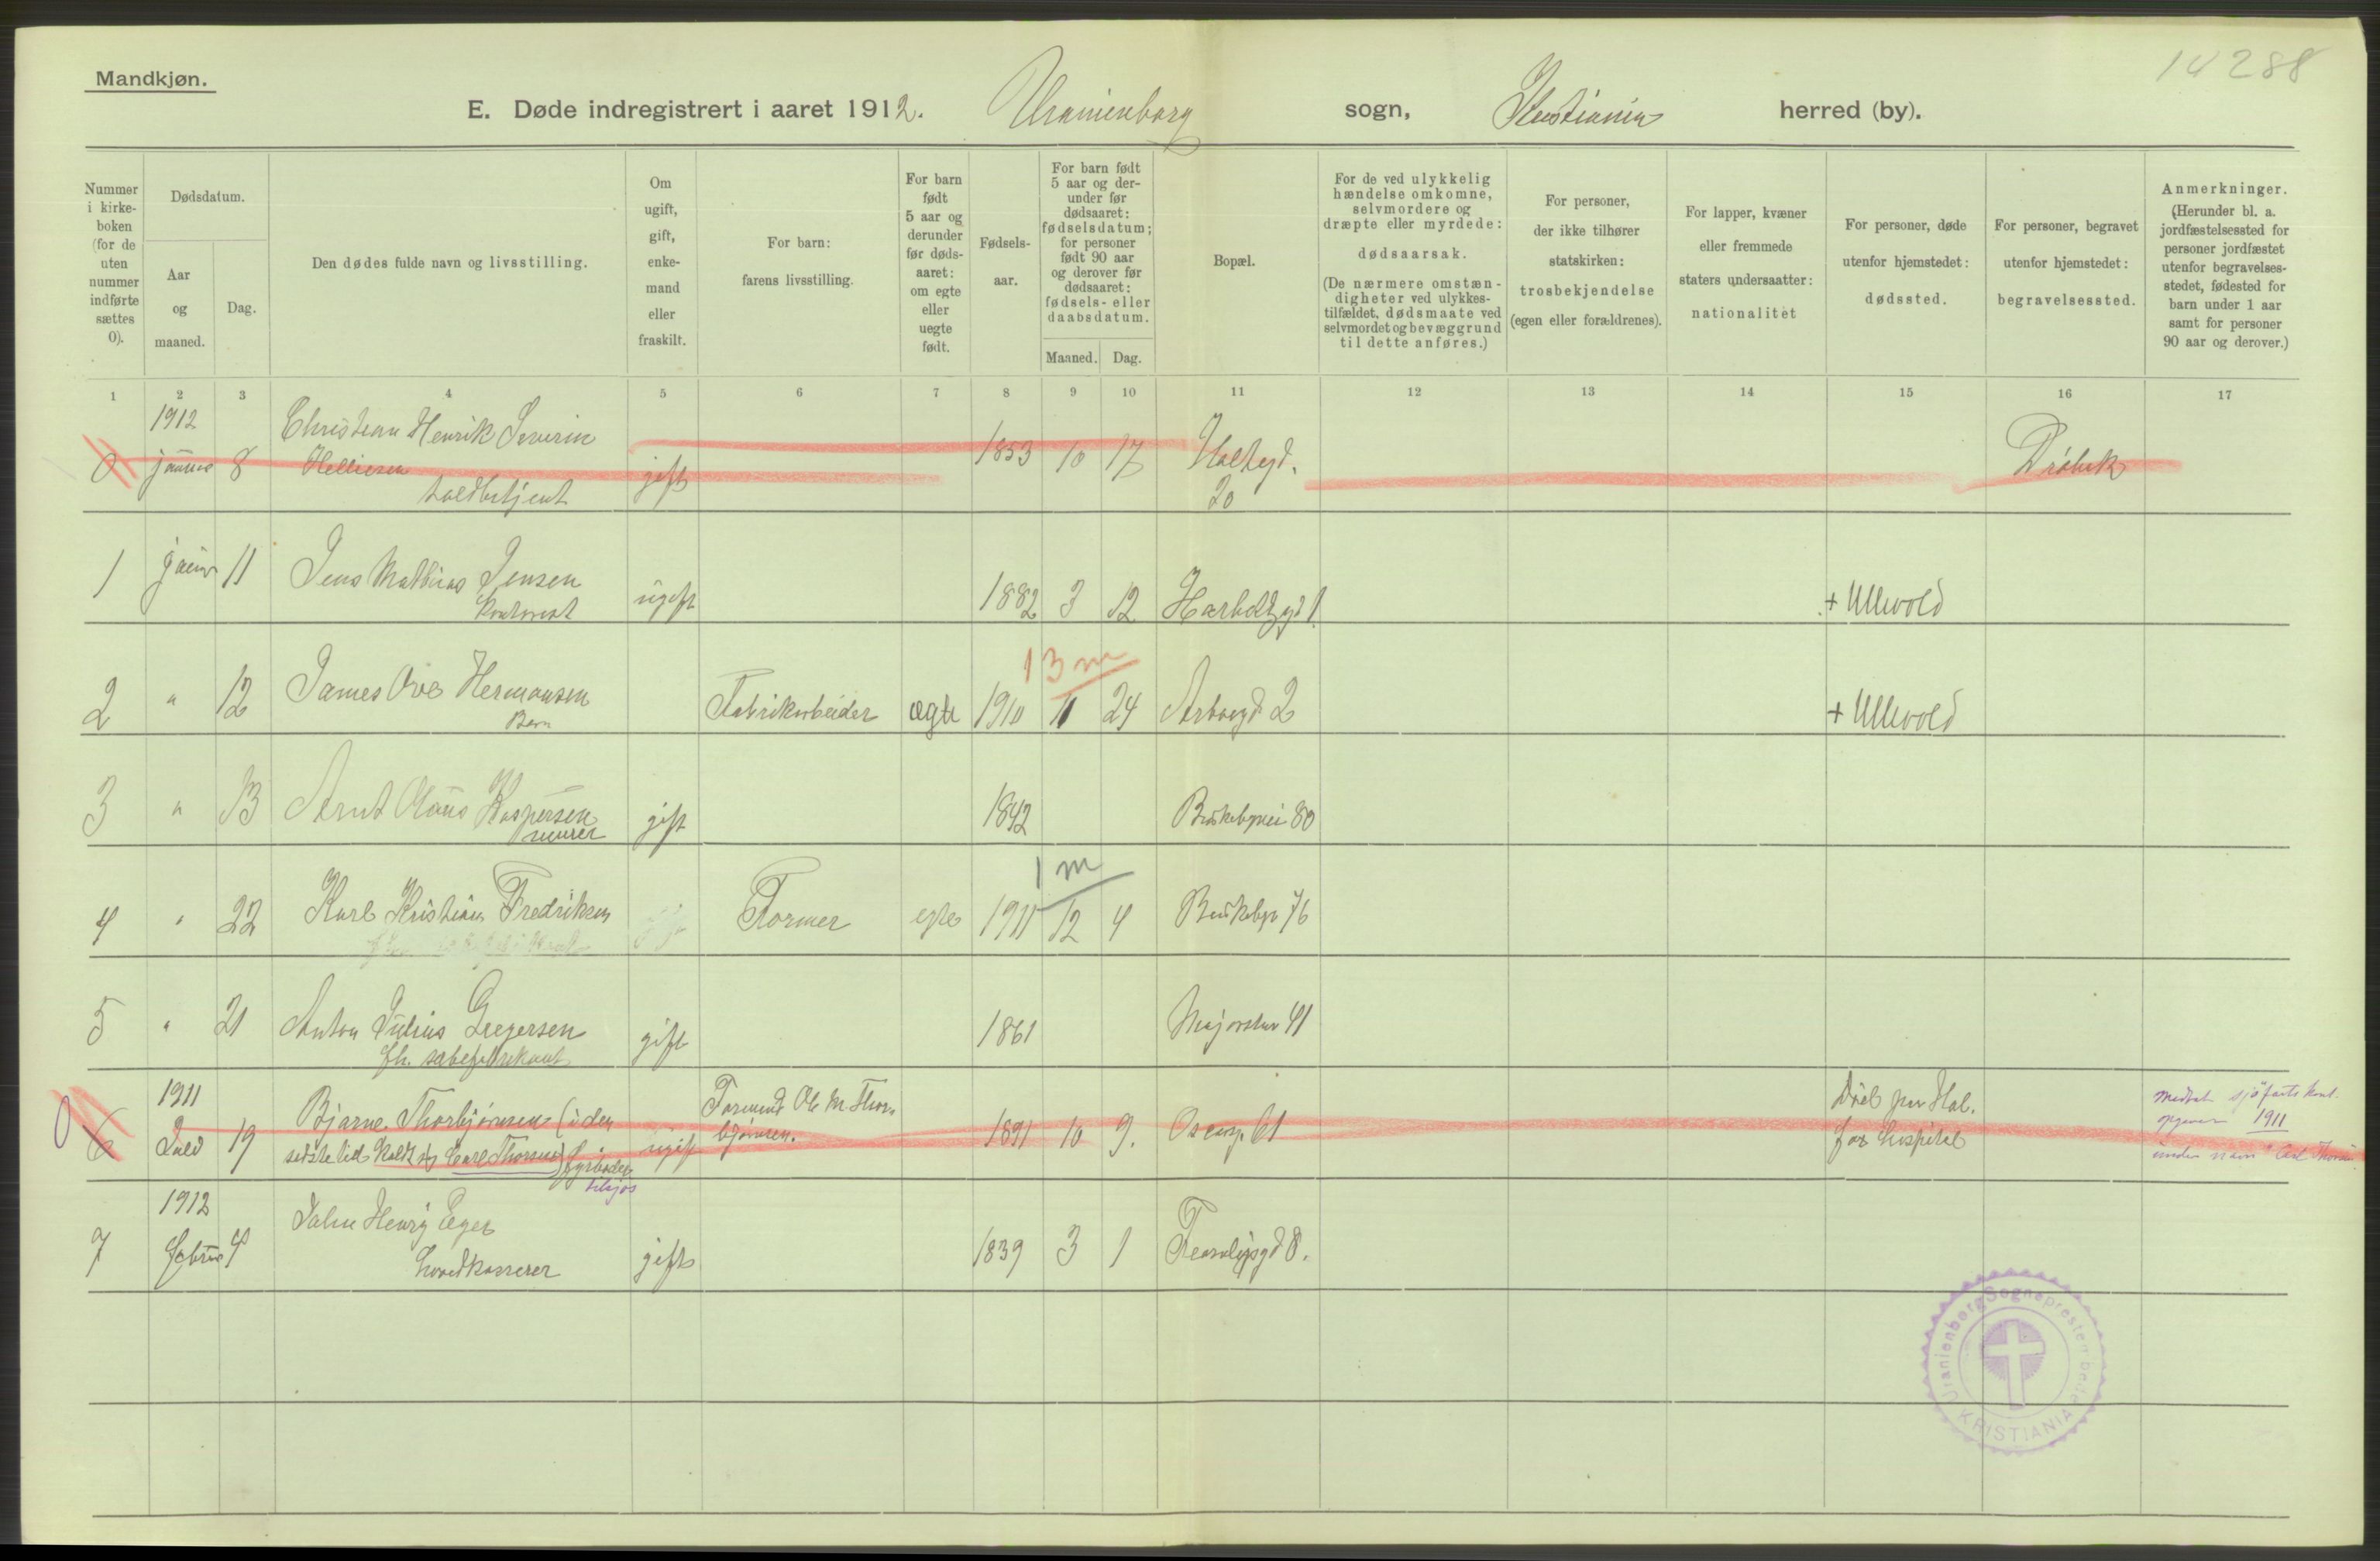 14288
Mandkjøn.
E. Døde indregistrert i aaret 1912. Uranienborg sogn, Kristiania herred (by).
Nummer i kirkeboken (for de uten nummer indførte sættes 0).
Dødsdatum.
Aar og maaned.
Dag.
Den dødes fulde navn og livsstilling.
Om ugift, gift, enkemand eller fraskilt.
For barn: farens livsstilling.
For barn født 5 aar og derunder før dødsaaret: om egte eller uegte født.
Fødselsaar.
For barn født 5 aar og derunder før dødsaaret: fødselsdatum; for personer født 90 aar og derover før dødsaaret: fødsels- eller daabsdatum.
Maaned. Dag.
Bopæl.
For de ved ulykkelig hændelse omkomne, selvmordere og dræpte eller myrdede: dødsaarsak. (De nærmere omstændigheter ved ulykkestilfældet, dødsmaate ved selvmordet og bevæggrund til dette anføres.)
For personer, der ikke tilhører statskirken: trosbekjendelse (egen eller forældrenes).
For lapper, kvæner eller fremmede staters undersaatter: nationalitet
For personer, døde utenfor hjemstedet: dødssted.
For personer, begravet utenfor hjemstedet: begravelsessted.
Anmerkninger. (Herunder bl. a. jordfæstelsessted for personer jordfæstet utenfor begravelsesstedet, fødested for barn under 1 aar samt for personer 90 aar og derover.)
1 2 3 4 5 6 7 8 9 10 11 12 13 14 15 16 17
1912
0 januar 8 Christian Henrik Severin Helliesen toldbetjent gift 1853 10 17 Holtegd. 20 Drøbak
1 januar 11 Jens Mathias Jensen Kontorist ugift 1882 3 12 Hærboldtgd 1 + Ullevold
13 m
2 " 12 James Ove Hermansen Barn Fabrikarbeider ægte 1910 11 24 Arbogd 2 + Ullevold
3 " 13 Arnt Olaus Kaspersen murer gift 1842 80
1 m
4 " 22 Karl Kristian Fredriksen Former egte 1911 12 4 76
5 " 21 Anton Julius Gregersen fh. sæbefabrikant gift 1861 Majorstuv 41
1911
0 6 Juli 19 Bjarne Thorbjørnsen (i den sidste tid kaldt sig Carl Thorsen) fyrbøder tilsjøs ugift Formand Ole M. Thorbjørnsen. 1891 10 9. Oscarsg. 61 Død paa Hal. fax hospital
sjøfarts kont. opgaven 1911 under navn "Carl Thorsen"
1912
7 Februar 4 John Henry Eger hovedkasserer gift 1839 3 1 8.
Uranienborg Sogneprestembede KRISTIANIA